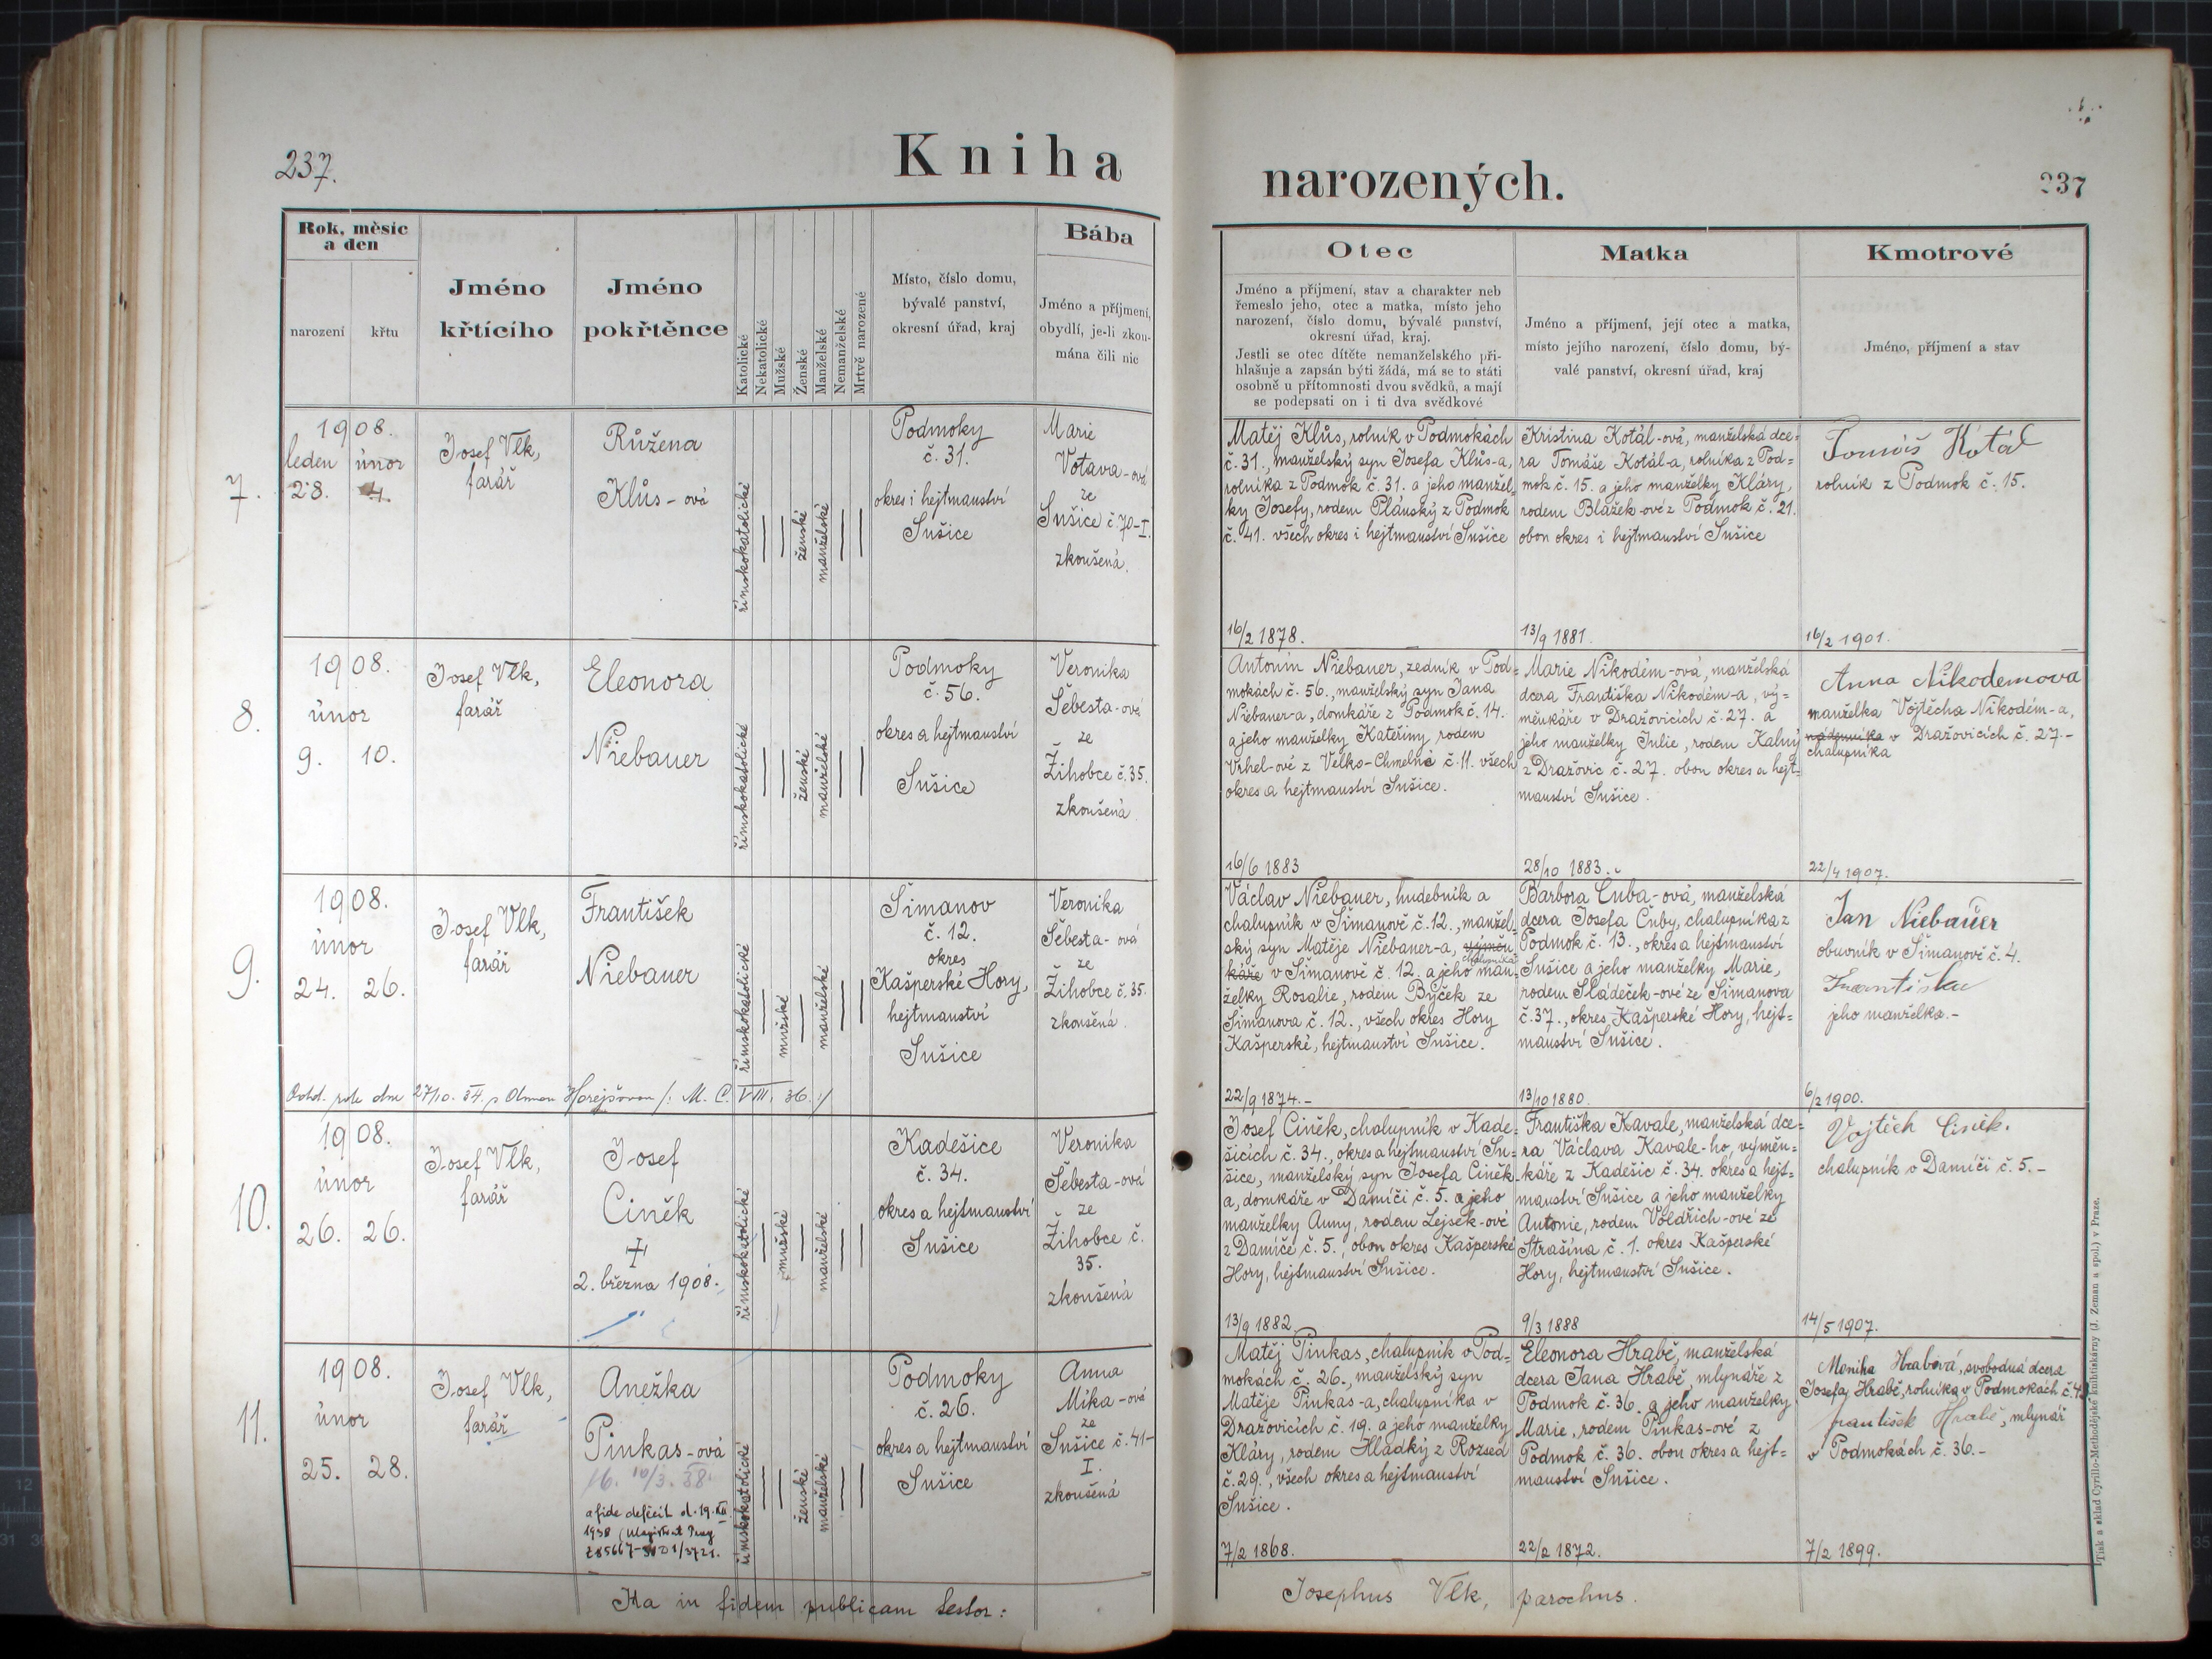 237.
Kniha
narozených.
237
Rok, měsíc
a den
narození
křtu
Jméno
křtícího
Jméno
pokřtěnce
Katolické
Nekatolické
Mužské
Ženské
Manželské
Nemanželské
Mrtvě narozené
Místo, číslo domu,
bývalé panství,
okresní úřad, kraj
Bába
Jméno a příjmení,
obydlí, je-li zkou-
mána čili nic
Otec
Jméno a příjmení, stav a charakter neb
řemeslo jeho, otec a matka, místo jeho
narození, číslo domu, bývalé panství,
okresní úřad, kraj.
Jestli se otec dítěte nemanželského při-
hlašuje a zapsán býti žádá, má se to státi
osobně u přítomnosti dvou svědků, a mají
se podepsati on i ti dva svědkové
Matka
Jméno a příjmení, její otec a matka,
místo jejího narození, číslo domu, bý-
valé panství, okresní úřad, kraj
Kmotrové
Jméno, příjmení a stav
7.
1908.
leden únor
28. 4.
Josef Vlk,
farář
Růžena
Klůs-ová
římskokatolické
ženské
manželské
Podmoky
č. 31.
okres i hejtmanství
Sušice
Marie
Votava-ová
ze
Sušice č. 70-I.
zkoušená.
Matěj Klůs, rolník v Podmokách
č. 31., manželský syn Josefa Klůs-a,
rolníka z Podmok č. 31. a jeho manžel-
ky Josefy, rodem Plánský z Podmok
č. 41. všech okres i hejtmanství Sušice
16/2 1878.
Kristina Kotál-ová, manželská dce=
ra Tomáše Kotál-a, rolníka z Pod=
mok č. 15. a jeho manželky Kláry,
rodem Blažek-ové z Podmok č. 21.
obou okres i hejtmanství Sušice
13/9 1881.
Tomáš Kotál
rolník z Podmok č. 15.
16/2 1901.
8.
1908.
únor
9. 10.
Josef Vlk,
farář
Eleonora
Niebauer
římskokatolické
ženské
manželské
Podmoky
č. 56.
okres a hejtmanství
Sušice
Veronika
Šebesta-ová
ze
Žihobce č. 35.
zkoušená.
Antonín Niebauer, zedník v Pod=
mokách č. 56., manželský syn Jana
Niebauer-a, domkáře z Podmok č. 14.
a jeho manželky Kateřiny, rodem
Vrhel-ové z Velko-Chmelná č. 11. všech
okres a hejtmanství Sušice.
16/6 1883
Marie Nikodém-ová, manželská
dcera Františka Nikodém-a, vý=
měnkáře v Dražovicích č. 27. a
jeho manželky Julie, rodem Kalný
z Dražovic č. 27. obou okres a hejt=
manství Sušice.
28/10 1883.
Anna Nikodemova
manželka Vojtěcha Nikodém-a,
v Dražovicích č. 27.-
chalupníka
22/4 1907.
9.
1908.
únor
24. 26.
Josef Vlk,
farář
František
Niebauer
římskokatolické
mužské
manželské
Šimanov
č. 12.
okres
Kašperské Hory,
hejtmanství
Sušice
Veronika
Šebesta-ová
ze
Žihobce č. 35.
zkoušená.
dne 27/10. 34. s Annou Horejšovou /: M. C. VIII. 36. :/
Václav Niebauer, hudebník a
chalupník v Šimanově č. 12., manžel-
ský syn Matěje Niebauer-a, výměn-
káře chalupníka v Šimanově č. 12. a jeho man-
želky Rosalie, rodem Býček ze
Šimanova č. 12., všech okres Hory
Kašperské, hejtmanství Sušice.
22/9 1874.-
Barbora Cuba-ová, manželská
dcera Josefa Cuby, chalupníka z
Podmok č. 13., okres a hejtmanství
Sušice a jeho manželky Marie,
rodem Sládeček-ové ze Šimanova
č. 37., okres Kašperské Hory, hejt=
manství Sušice.
13/10 1880.
Jan Niebauer
obuvník v Šimanově č. 4.
Františka
jeho manželka.-
6/2 1900.
10.
1908.
únor
26. 26.
Josef Vlk,
farář
Josef
Ciněk
+
2. března 1908.
římskokatolické
mužské
manželské
Kadešice
č. 34.
okres a hejtmanství
Sušice
Veronika
Šebesta-ová
ze
Žihobce č.
35.
zkoušená
Josef Ciněk, chalupník v Kade=
šicích č. 34., okres a hejtmanství Su=
šice, manželský syn Josefa Ciněk-
a, domkáře v Damíči č. 5. a jeho
manželky Anny, rodem Lejsek-ové
z Damíče č. 5., obou okres Kašperské
Hory, hejtmanství Sušice.
13/9 1882
Františka Kavale, manželská dce-
ra Václava Kavale-ho, výměn-
káře z Kadešic č. 34. okres a hejt-
manství Sušice a jeho manželky
Antonie, rodem Voldřich-ové ze
Strašína č. 1. okres Kašperské
Hory, hejtmanství Sušice.
9/3 1888
Vojtěch Ciněk.
chalupník v Damíči č. 5.-
14/5 1907.
11.
1908.
únor
25. 28.
Josef Vlk,
farář
Anežka
Pinkas-ová
16. 10/3. 38.
a fide defecit d. 19. XII
1938 (Magistrat Prag
římskokatolické
ženské
manželské
Podmoky
č. 26.
okres a hejtmanství
Sušice
Anna
Míka-ová
ze
Sušice č. 41-
I.
zkoušená
Matěj Pinkas, chalupník v Pod-
mokách č. 26., manželský syn
Matěje Pinkas-a, chalupníka v
Dražovicích č. 19. a jeho manželky
Kláry, rodem Hladký z Rozsed
č. 29., všech okres a hejtmanství
Sušice.
7/2 1868.
Eleonora Hrabě, manželská
dcera Jana Hrabě, mlynáře z
Podmok č. 36. a jeho manželky
Marie, rodem Pinkas-ové z
Podmok č. 36. obou okres a hejt=
manství Sušice.
22/2 1872.
Monika Hrabová, svobodná dcera
Josefa Hrabě, rolníka v Podmokách č. 4
František Hrabě, mlynář
v Podmokách č. 36.-
7/2 1899.
Ita in fidem publicam testor:
Josephus Vlk, parochus.
Tisk a sklad Cyrillo-Methodějské knihtiskárny (J. Zeman a spol.) v Praze.